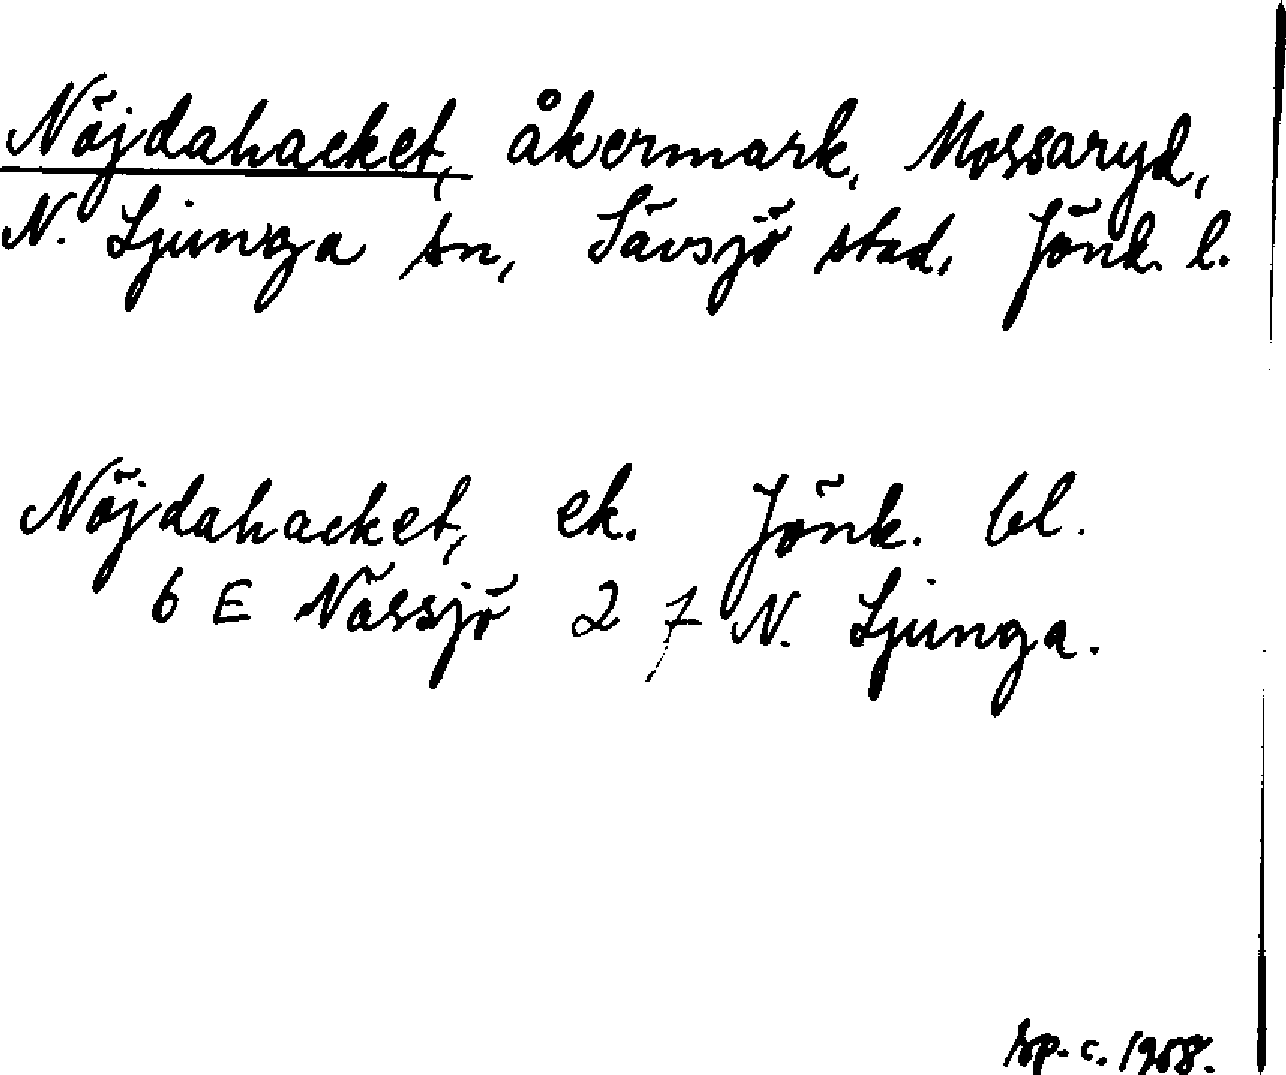 Nöjdahacket, åkermark, Mossaryd,
N. Ljunga sn, Sävsjö stad, Jönk. l.
Nöjdahacket, ek. Jönk. bl.
6 E Nässjö 2 7 N. Ljunga.
sp. c. 1958.